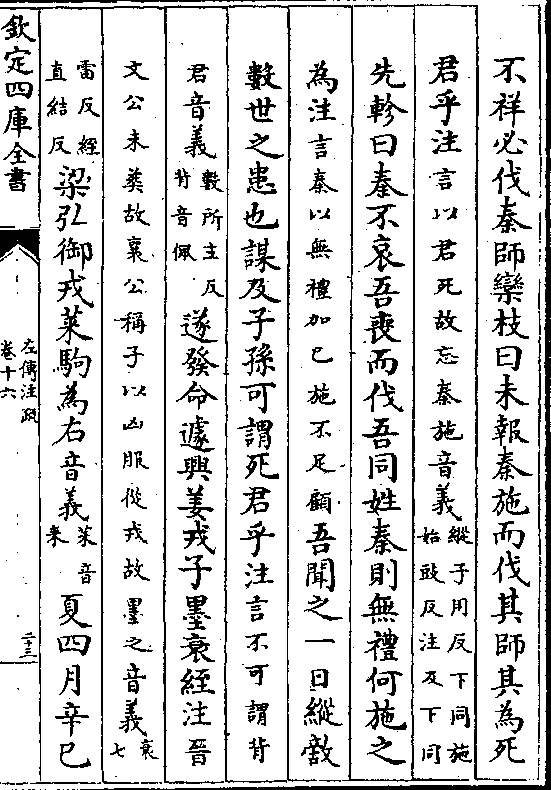 不祥必伐秦師欒枝曰未報秦施而伐其師其為死
君乎注言以君死故忘秦施音義縱子用反下同施
始豉反注及下同
先軫曰秦不哀吾喪而伐吾同姓秦則無禮何施之
為注言秦以無禮加已施不足顧吾聞之一日縱敵
數世之患也謀及子孫可謂死君乎注言不可謂背
君音義數所主反
背音佩
遂發命遽興姜戎子墨衰絰注晉
文公未葬故襄公稱子以凶服從戎故墨之音義衰
七
雷反絰
直結反
梁弘御戎萊駒為右音義萊音
來
夏四月辛巳
欽定四庫全書
左傳注疏
卷十六
二十三